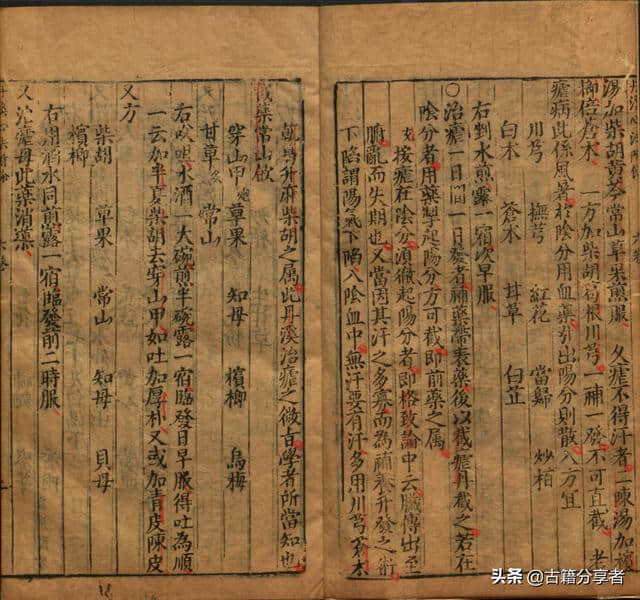 湯加柴胡黃芩常山草果煎服 久瘧不得汗者二陳湯加檳
榔倍蒼朮 一方加柴胡葛根川芎一補一發不可直截 老
瘧病此係風暑於陰分用血藥引出陽分則散入方宜
川芎 撫芎 紅花 當歸 炒柏
白朮 蒼朮 甘草 白芷
右剉水煎露一宿次早服
○治瘧一日間一日發者補藥帶表藥後以截瘧丹截之若在
陰分者用藥掣起陽分方可截即前藥之屬
按瘧在陰分須徹起陽分者即格致論中云臟傳出至
腑亂而失期也又當因其汗之多寡而為補養升發之術
下陷謂陽氣下陷入陰血中無汗要有汗多用川芎蒼朮
乾葛升麻柴胡之屬此丹溪治瘧之微旨學者所當知也
截瘧常山飲
穿山甲炮 草果 知母 檳榔 烏梅
甘草炙 常山
右㕮咀水酒一大碗煎半碗露一宿臨發日早服得吐為順
一云加半夏柴胡去穿山甲如吐加厚朴又或加青皮陳皮
又方
柴胡 草果 常山 知母 貝母
檳榔
右用酒水同煎露一宿臨發前二時服
又治瘧母此藥消導
头条 @古籍分享者